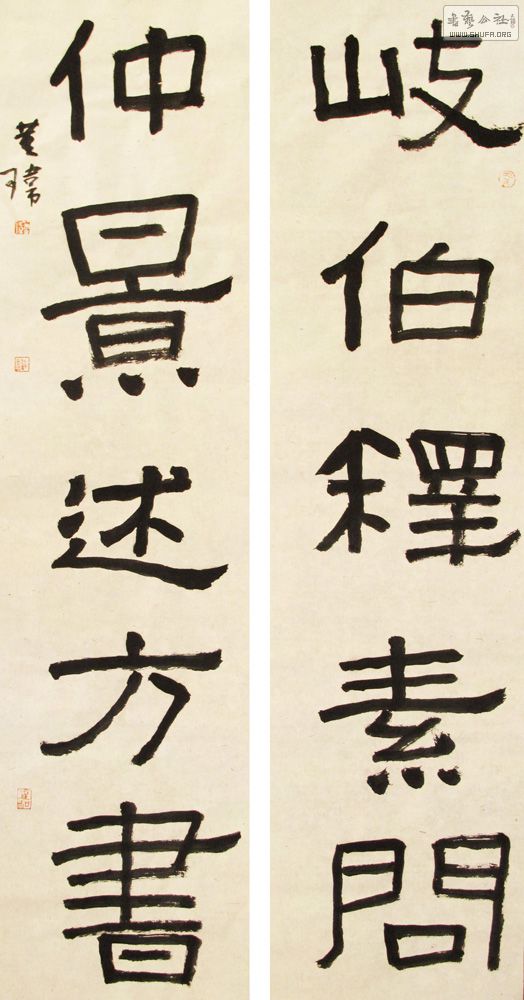 岐伯釋素問
仲景述方書
書藝公社
WWW.SHUFA.ORG